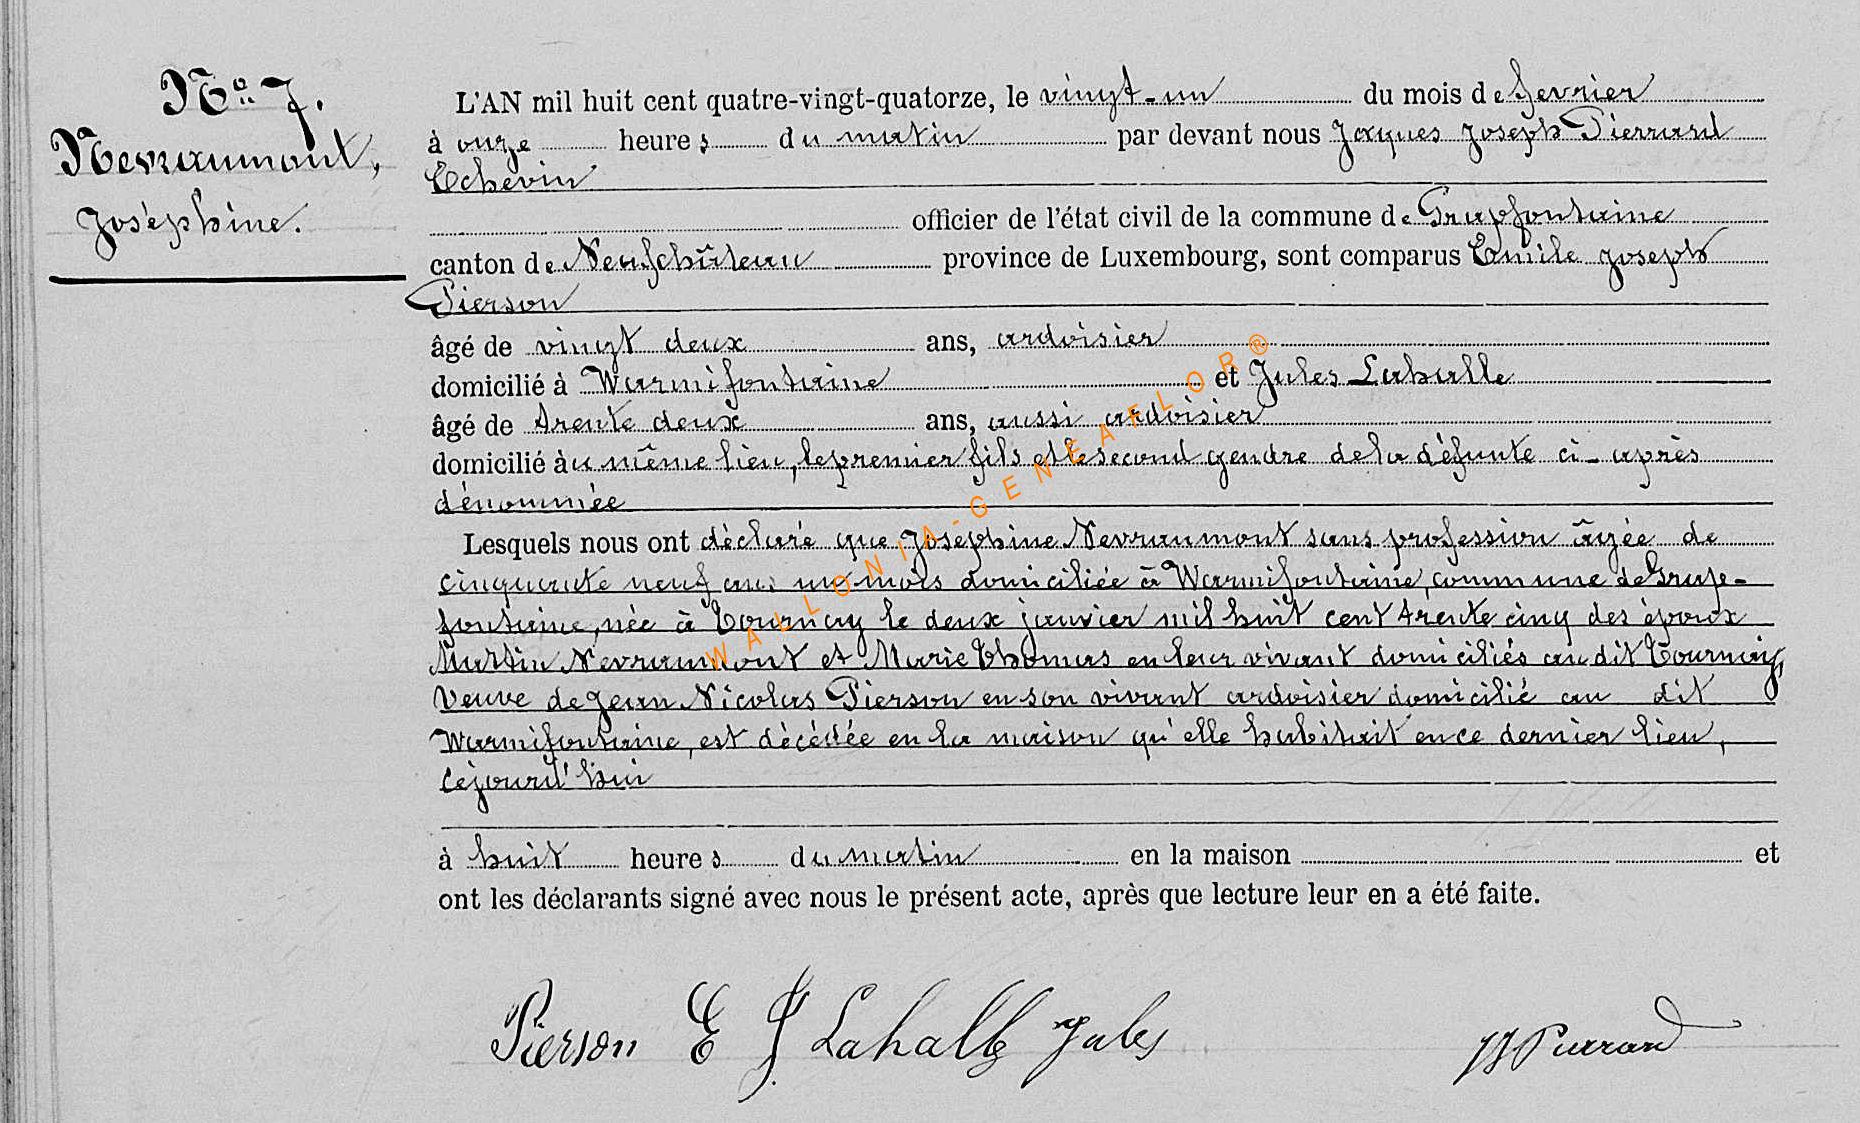 No. 7.
Nevraumont,
Joséphine.
L'AN mil huit cent quatre-vingt-quatorze, le vingt-un du mois de fevrier
à onze heures du matin par devant nous Jaques Joseph Pierrard
Echevin
officier de l'état civil de la commune de Grapfontaine
canton de Neufchâteau province de Luxembourg, sont comparus Emile Joseph
Pierson
âgé de vingt deux ans, ardoisier
domicilié à Warmifontaine et Jules Lahalle
âgé de trente deux ans, aussi ardoisier
domicilié au même lieu, le premier fils et le second gendre de la défunte ci-après
dénommée
Lesquels nous ont déclaré que Joséphine Nevraumont sans profession âgée de
cinquante neuf ans un mois domiciliée à Warmifontaine, commune de Grap-
fontaine, née à Tournay le deux janvier mil huit cent trente cinq des époux
Martin Nevraumont et Marie Thomas en leur vivant domiciliés au dit Tournay,
Veuve de Jean Nicolas Pierson en son vivant ardoisier domicilié au dit
Warmifontaine, est décédée en la maison qu'elle habitait en ce dernier lieu,
cejourd'hui
à huit heures du matin en la maison et
ont les déclarants signé avec nous le présent acte, après que lecture leur en a été faite.
Pierson E J Lahalle Jules JJ Pierrard
WALLONIA-GENEAFLOR®